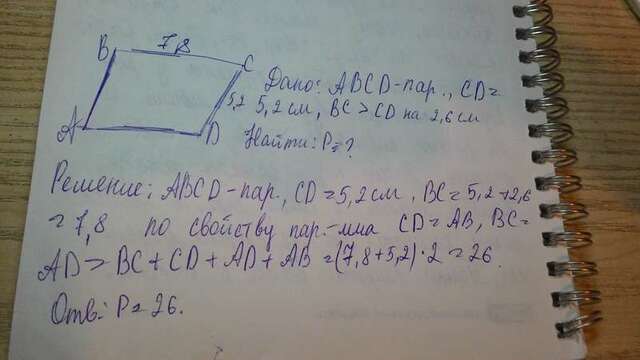 B 7,8 C
Дано: ABCD-пар., CD=
5,2 5,2 см, BC > CD на 2,6 см
A D Найти: P=?
Решение: ABCD-пар., CD=5,2 см, BC=5,2+2,6
= 7,8 по свойству пар.-мма CD=AB, BC=
AD > BC + CD + AD + AB = (7,8+5,2)·2 = 26.
Отв: P=26.